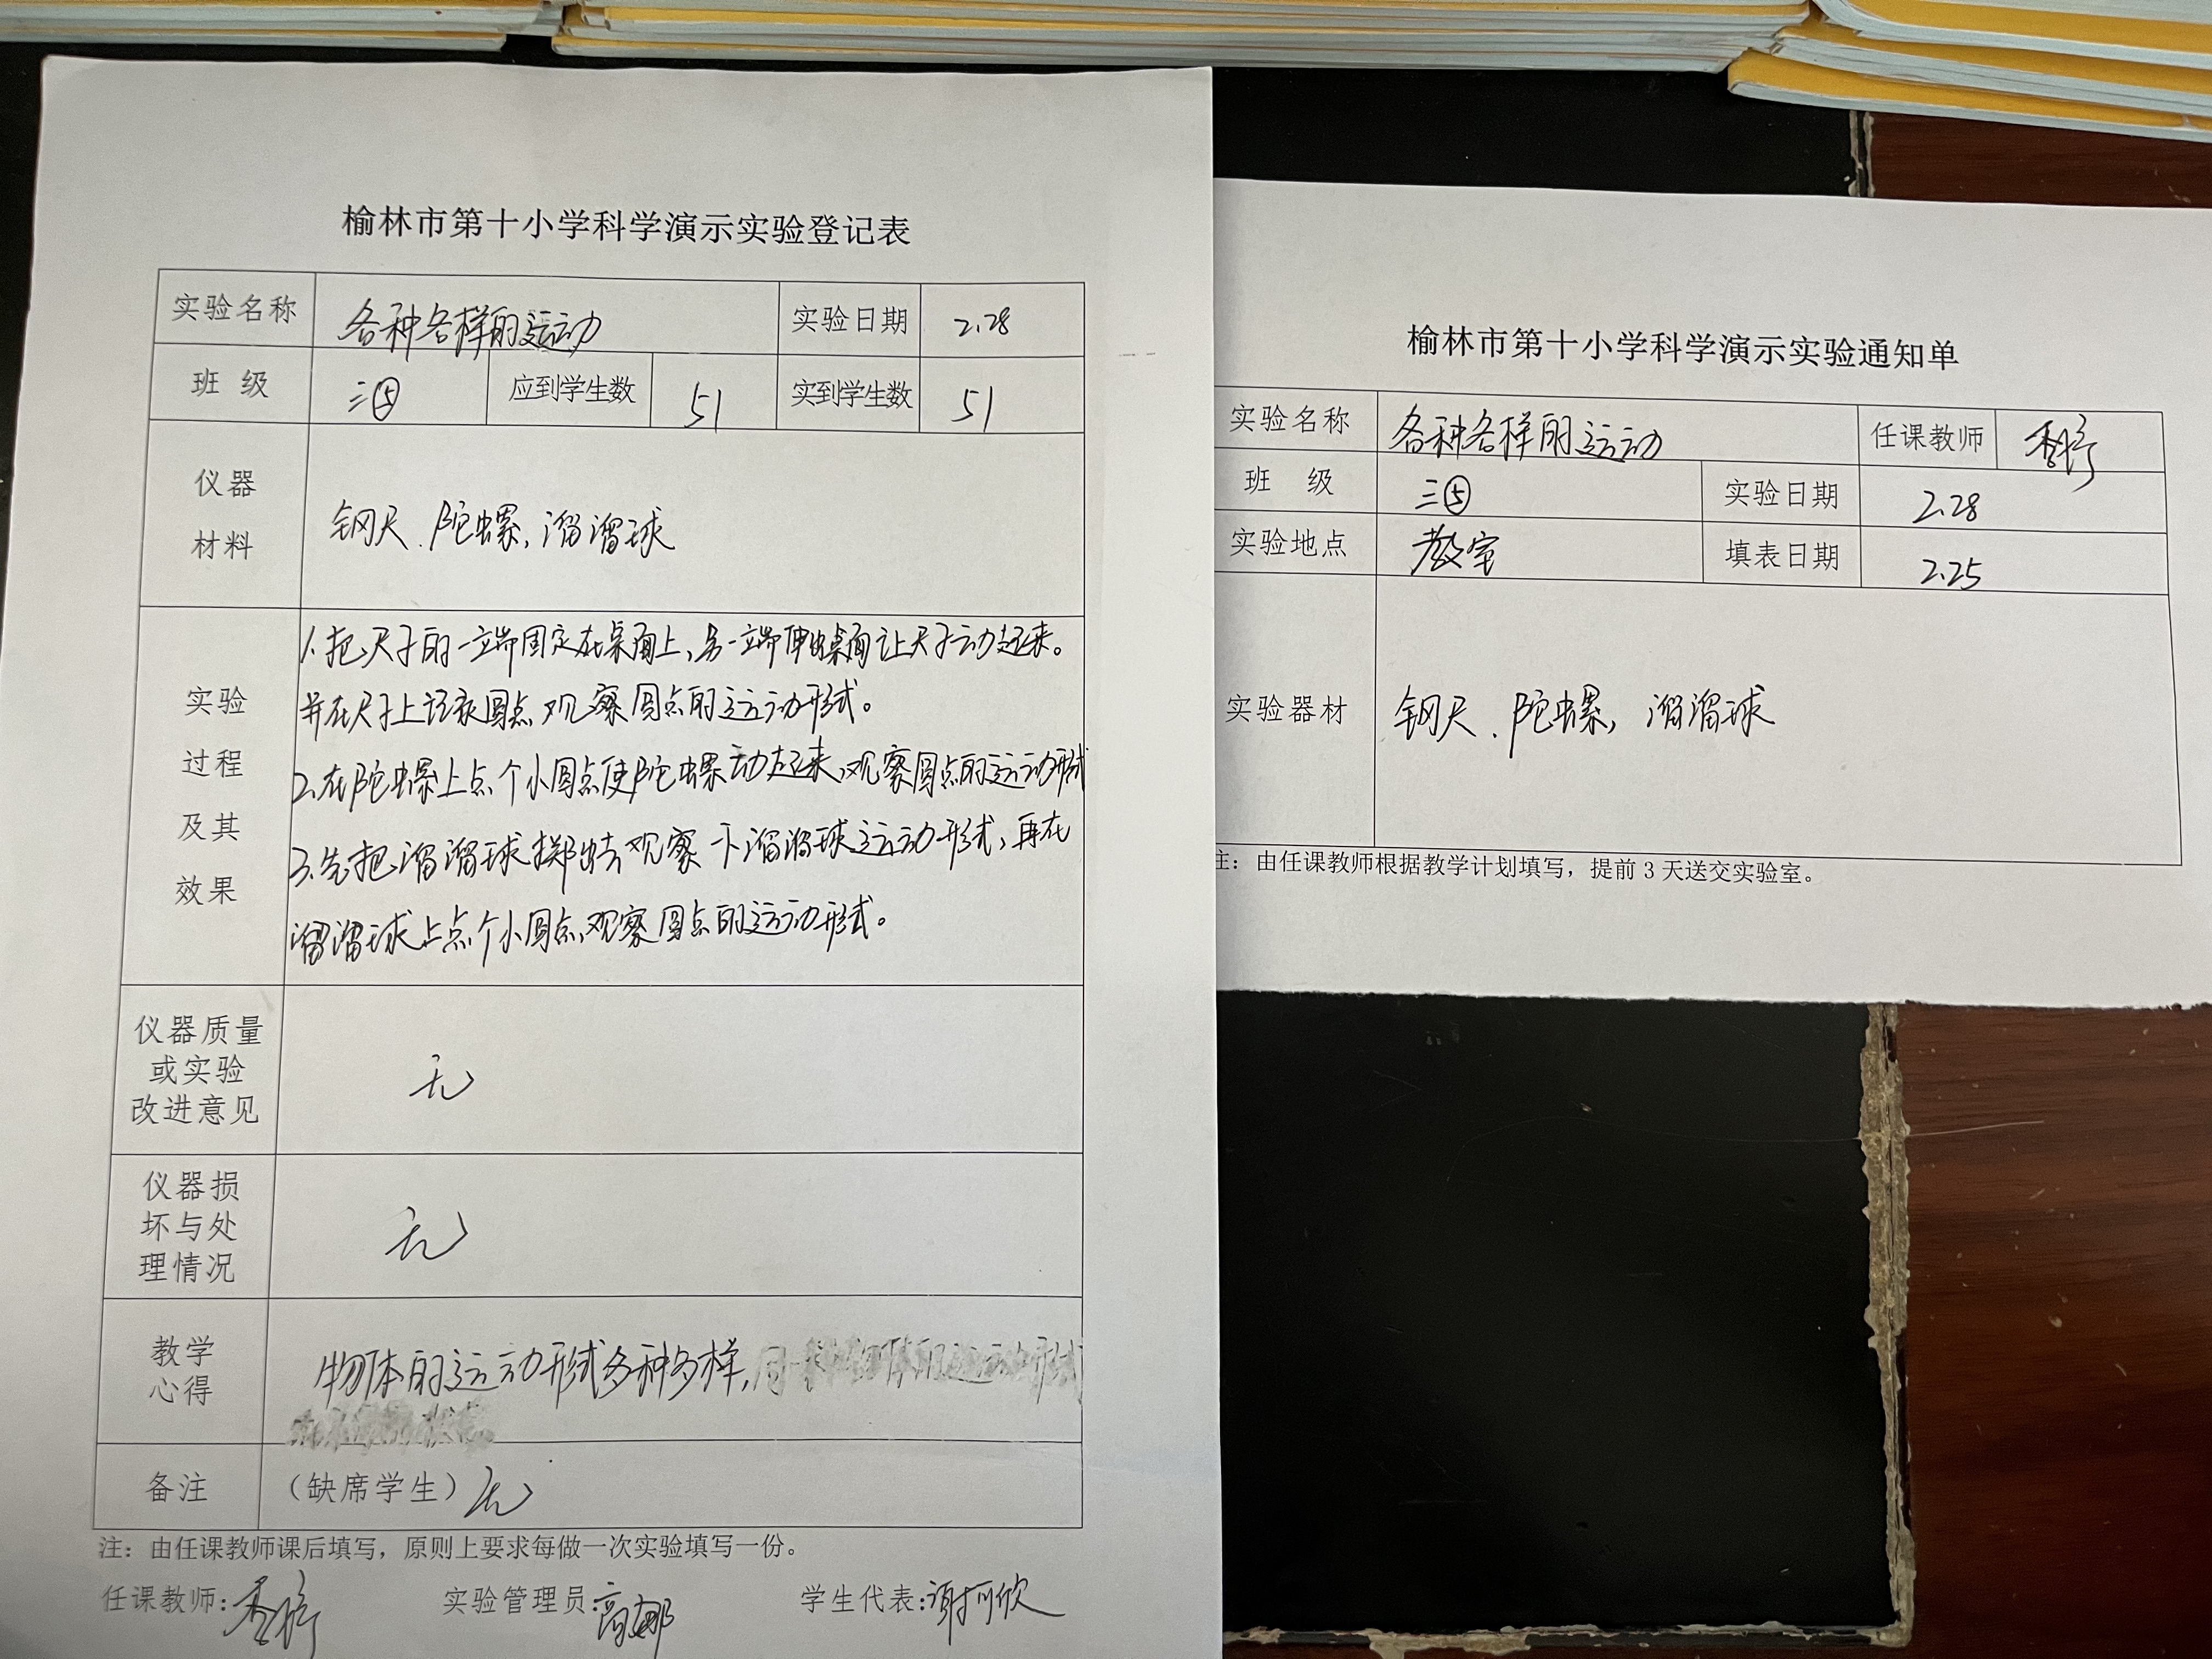 榆林市第十小学科学演示实验登记表
实验名称 各种各样的运动 实验日期 2.28
班 级 三⑤ 应到学生数 51 实到学生数 51
仪器
材料
钢尺、陀螺,溜溜球
实验
过程
及其
效果
1.把尺子的一端固定在桌面上,另一端伸出桌面让尺子动起来。
并在尺子上记录圆点,观察圆点的运动形式。
2.在陀螺上点个小圆点使陀螺动起来,观察圆点的运动形式
3.先把溜溜球掷出去观察一下溜溜球运动形式,再在
溜溜球上点个小圆点,观察圆点的运动形式。
仪器质量
或实验
改进意见
无
仪器损
坏与处
理情况
无
教学
心得
物体的运动形式多种多样,
备注 (缺席学生)无
注:由任课教师课后填写,原则上要求每做一次实验填写一份。
任课教师: 实验管理员: 学生代表:
榆林市第十小学科学演示实验通知单
实验名称 各种各样的运动 任课教师
班 级 三⑤ 实验日期 2.28
实验地点 教室 填表日期 2.25
实验器材 钢尺、陀螺,溜溜球
注:由任课教师根据教学计划填写,提前 3 天送交实验室。